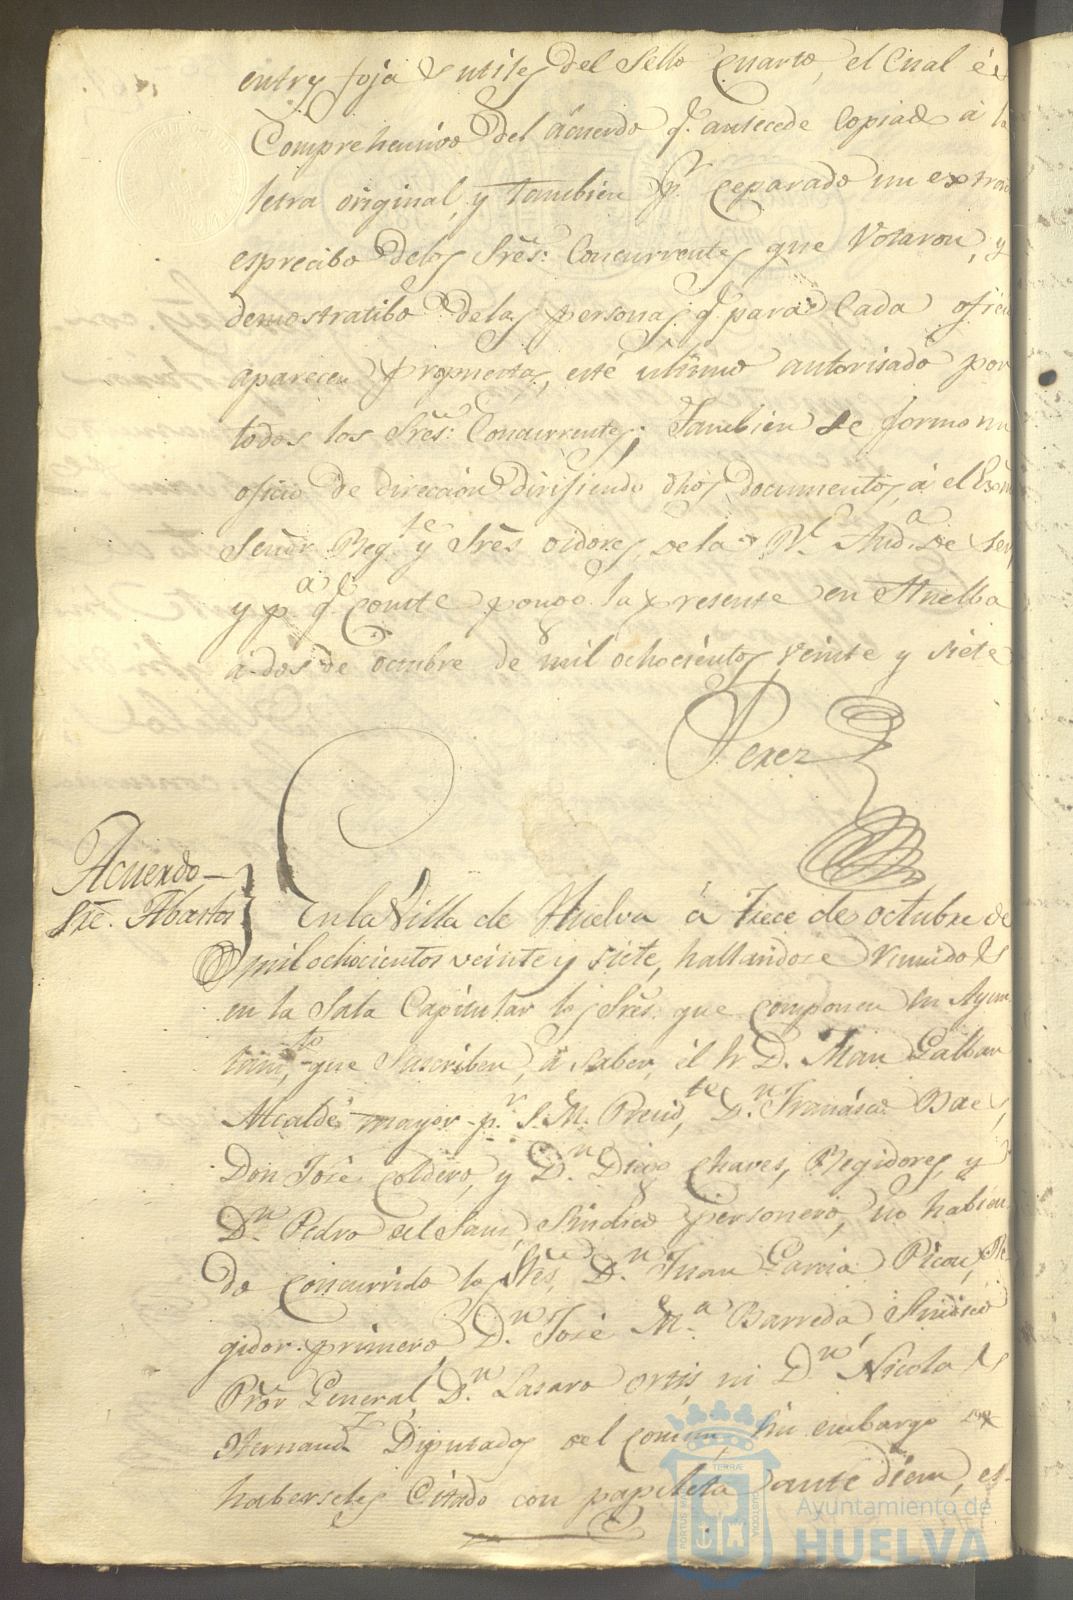 entrs. foja s utiles del Sello quarto, el Cual és
Comprehencivo del acuerdo q. antecede Copiado a la
letra original, y tambien pr. ceparado un extracto
esprecibo delos Sres. Concurrentes que Votaron, y
demostratibo delas personas q. para Cada oficio
aparecen propuestas, esté ultimo autorisado por
todos los Sres. Concurrentes; Tambien se formo un
oficio de direccion dirisiendo dhos documentos, á el Exmo
Señor Regte. y Sres oidores de la Rl. Auda. de Sev,
y pa. q. conste pongo la presente en Huelba
a dos de octubre de mil ochocientos veinte y siete
Perez
Acuerdo
Sre. Abastos
En la Villa de Huelva á Trece de octubre de
mil ochocientos veinte y siete, hallandose reunidos
en la Sala Capitular los Sres. que componen su Ayun
tamto, que Suscriben, á saber, él Sr D. Juan Galban
Alcalde mayor pr. S. M. Presidte, Dn. Francisco Baes,
Don José Coldero, y Dn. Diego Chaves, Regidores, y
Dn. Pedro del Sanz, Sindico personero, no habien
do concurrido los Sres. Dn. Juan Garcia Picon, Re
gidor primero, Dn. José Ma. Barreda, Sindico
Pror. General, Dn. Lasaro ortis, ni Dn. Nicolas
Hernandz Diputados del comun, sin embargo de
haberseles Citado con papeleta ante diem, es-
Ayuntamiento de
HUELVA